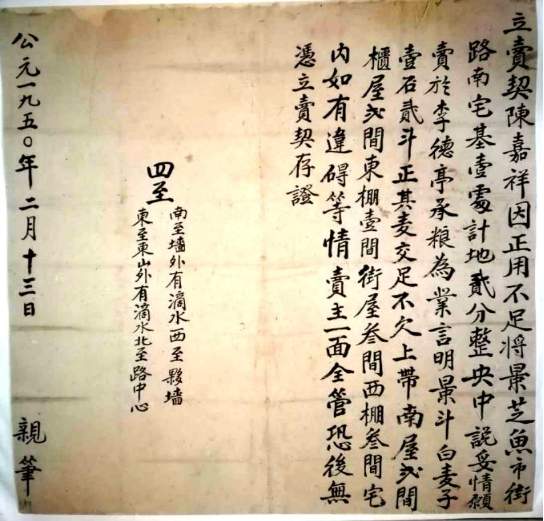 立賣契陳嘉祥因正用不足將景芝魚市街
路南宅基壹處計地貳分整央中說妥情願
賣於李德亭承粮為業言明景斗白麦子
壹石貳斗正其麦交足不欠上帶南屋弍間
櫃屋弍間東棚壹間街屋叁間西棚叁間宅
內如有違碍等情賣主一面全管恐後無
憑立賣契存證
四至
南至墻外有滴水西至夥墻
東至東山外有滴水北至路中心
公元一九五〇年二月十三日
親筆